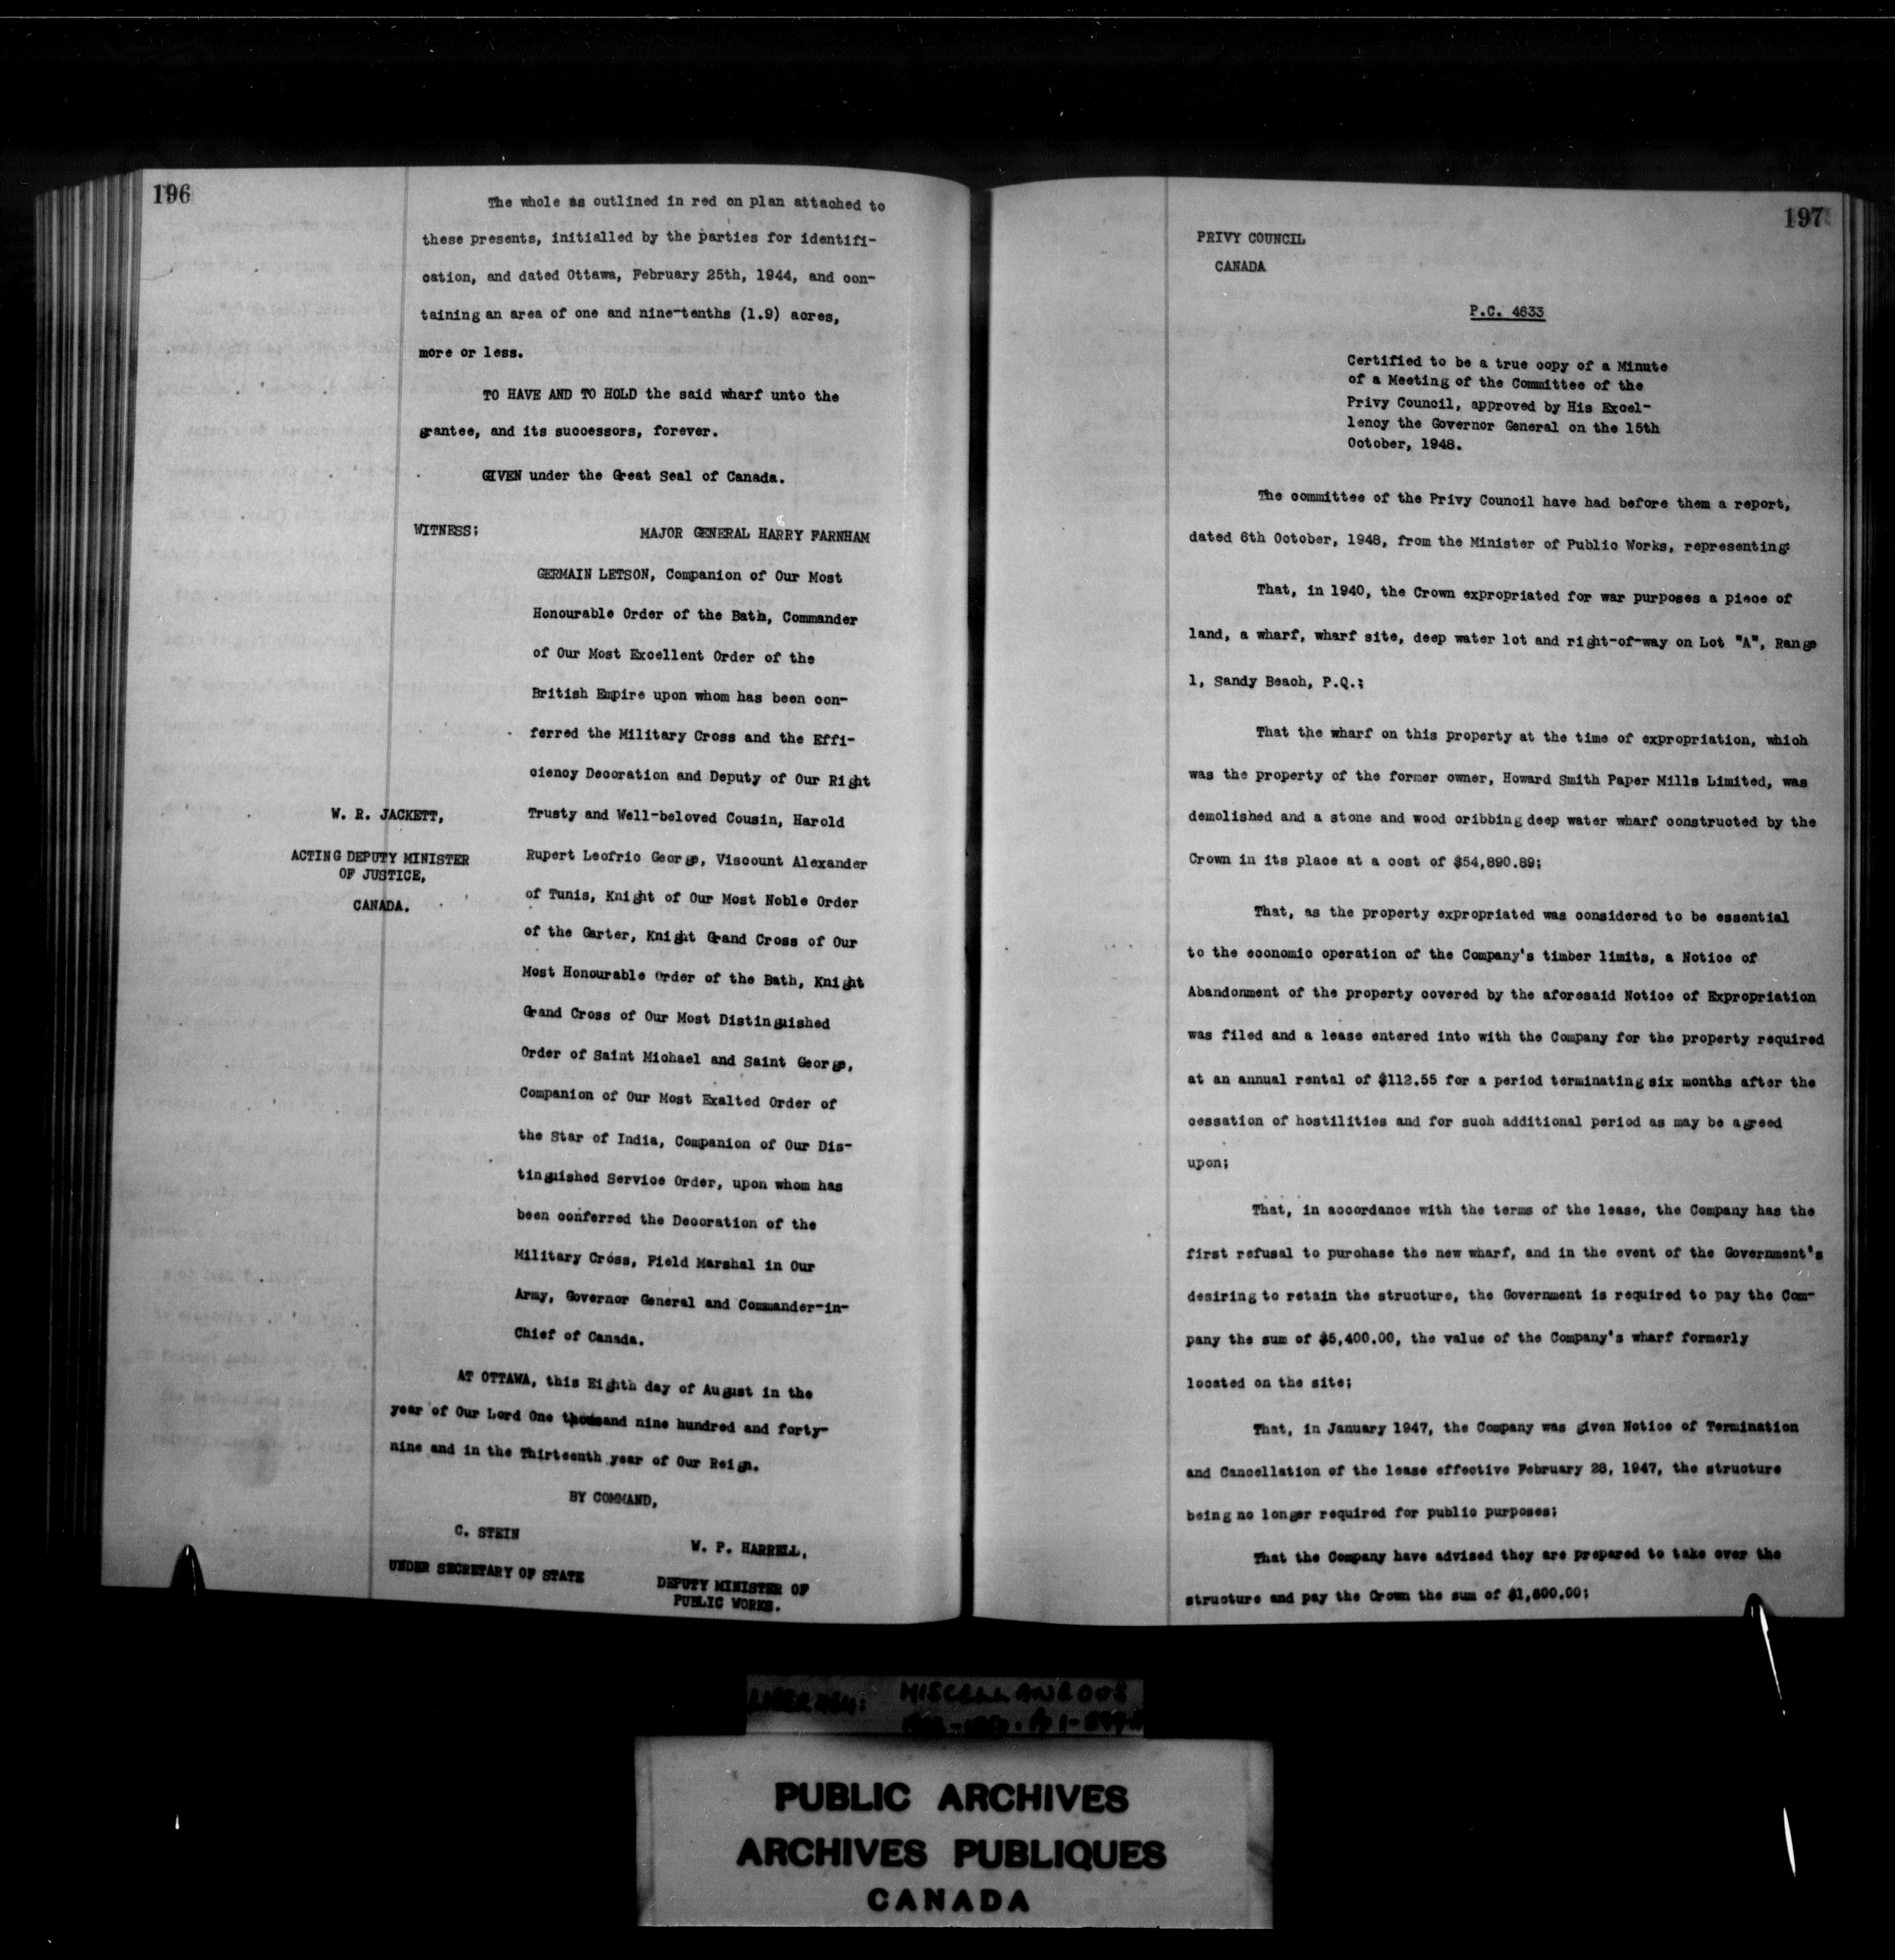 196
The whole as outlined in red on plan attached to
these presents, initialled by the parties for identifi-
cation, and dated Ottawa, February 25th, 1944, and con-
taining an area of one and nine-tenths (1.9) acres,
more or less.
TO HAVE AND TO HOLD the said wharf unto the
grantee, and its successors, forever.
GIVEN under the Great Seal of Canada.
WITNESS; MAJOR GENERAL HARRY FARNHAM
GERMAIN LETSON, Companion of Our Most
Honourable Order of the Bath, Commander
of Our Most Excellent Order of the
British Empire upon whom has been con-
ferred the Military Cross and the Effi-
ciency Decoration and Deputy of Our Right
Trusty and Well-beloved Cousin, Harold
Rupert Leofric George, Viscount Alexander
of Tunis, Knight of Our Most Noble Order
of the Garter, Knight Grand Cross of Our
Most Honourable Order of the Bath, Knight
Grand Cross of Our Most Distinguished
Order of Saint Michael and Saint George,
Companion of Our Most Exalted Order of
the Star of India, Companion of Our Dis-
tinguished Service Order, upon whom has
been conferred the Decoration of the
Military Cross, Field Marshal in Our
Army, Governor General and Commander-in-
Chief of Canada.
W. R. JACKETT,
ACTING DEPUTY MINISTER
OF JUSTICE,
CANADA.
AT OTTAWA, this Eighth day of August in the
year of Our Lord One thousand nine hundred and forty-
nine and in the Thirteenth year of Our Reign.
BY COMMAND,
C. STEIN
UNDER SECRETARY OF STATE
W. P. HARRELL,
DEPUTY MINISTER OF
PUBLIC WORKS.
197
PRIVY COUNCIL
CANADA
P.C. 4633
Certified to be a true copy of a Minute
of a Meeting of the Committee of the
Privy Council, approved by His Excel-
lency the Governor General on the 15th
October, 1948.
The committee of the Privy Council have had before them a report,
dated 6th October, 1948, from the Minister of Public Works, representing:
That, in 1940, the Crown expropriated for war purposes a piece of
land, a wharf, wharf site, deep water lot and right-of-way on Lot "A", Range
1, Sandy Beach, P.Q.;
That the wharf on this property at the time of expropriation, which
was the property of the former owner, Howard Smith Paper Mills Limited, was
demolished and a stone and wood cribbing deep water wharf constructed by the
Crown in its place at a cost of $54,890.89;
That, as the property expropriated was considered to be essential
to the economic operation of the Company's timber limits, a Notice of
Abandonment of the property covered by the aforesaid Notice of Expropriation
was filed and a lease entered into with the Company for the property required
at an annual rental of $112.55 for a period terminating six months after the
cessation of hostilities and for such additional period as may be agreed
upon;
That, in accordance with the terms of the lease, the Company has the
first refusal to purchase the new wharf, and in the event of the Government's
desiring to retain the structure, the Government is required to pay the Com-
pany the sum of $5,400.00, the value of the Company's wharf formerly
located on the site;
That, in January 1947, the Company was given Notice of Termination
and Cancellation of the lease effective February 28, 1947, the structure
being no longer required for public purposes;
That the Company have advised they are prepared to take over the
structure and pay the Crown the sum of
MISCELLANEOUS
PUBLIC ARCHIVES
ARCHIVES PUBLIQUES
CANADA